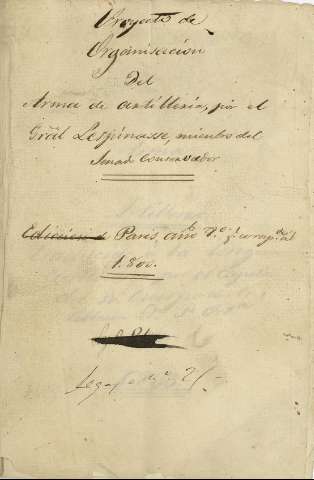 Proyecto de
Organisacion
Del
Arma de artilleria, por el
Gräl Lespinasse, miembro del
Senad Conservador
Edicion de Paris, año 7º y corrpte al
1.800.
Leg